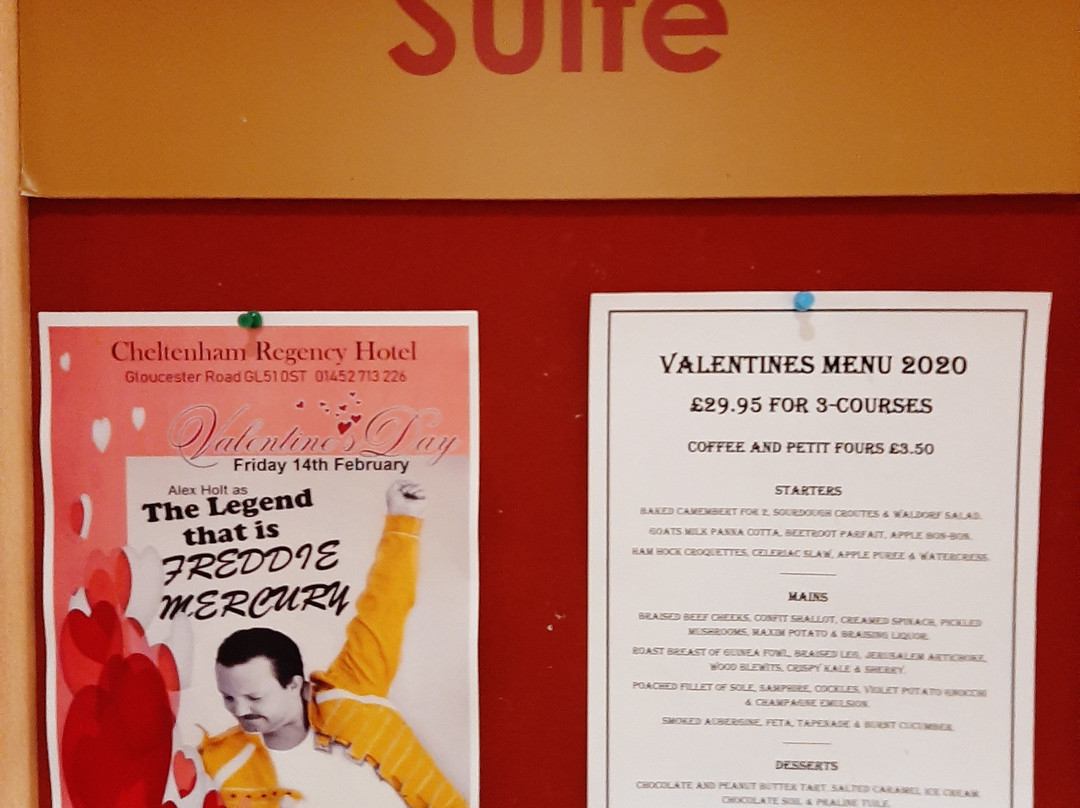 Suite
Cheltenham Regency Hotel
Gloucester Road GL51 0ST 01452 713 226
Valentine's Day
Friday 14th February
Alex Holt as
The Legend
that is
FREDDIE
MERCURY
VALENTINES MENU 2020
£29.95 FOR 3-COURSES
COFFEE AND PETIT FOURS £3.50
STARTERS
BAKED CAMEMBERT FOR 2, SOURDOUGH CROUTES & WALDORF SALAD.
GOATS MILK PANNA COTTA, BEETROOT PARFAIT, APPLE BON-BON.
HAM HOCK CROQUETTES, CELERIAC SLAW, APPLE PUREE & WATERCRESS.
MAINS
BRAISED BEEF CHEEKS, CONFIT SHALLOT, CREAMED SPINACH, PICKLED
MUSHROOMS, MAXIM POTATO & BRAISING LIQUOR.
ROAST BREAST OF GUINEA FOWL, BRAISED LEG, JERUSALEM ARTICHOKE,
WOOD BLEWITS, CRISPY KALE & SHERRY.
POACHED FILLET OF SOLE, SAMPHIRE, COCKLES, VIOLET POTATO GNOCCHI
& CHAMPAGNE EMULSION.
SMOKED AUBERGINE, FETA, TAPENADE & BURNT CUCUMBER.
DESSERTS
CHOCOLATE AND PEANUT BUTTER TART, SALTED CARAMEL ICE CREAM,
CHOCOLATE SOIL & PRALINE TUILE.